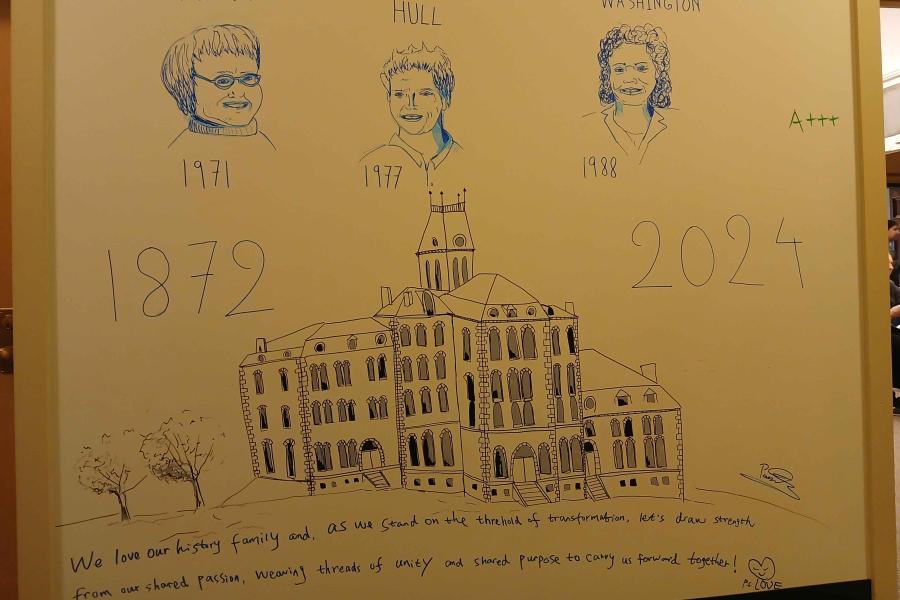 HULL
WASHINGTON
A+++
1971
1977
1988
1872
2024
We love our history family and, as we stand on the threhold of transformation, let's draw strength
from our shared passion, weaving threads of unity and shared purpose to carry us forward together!
Ps LOVE